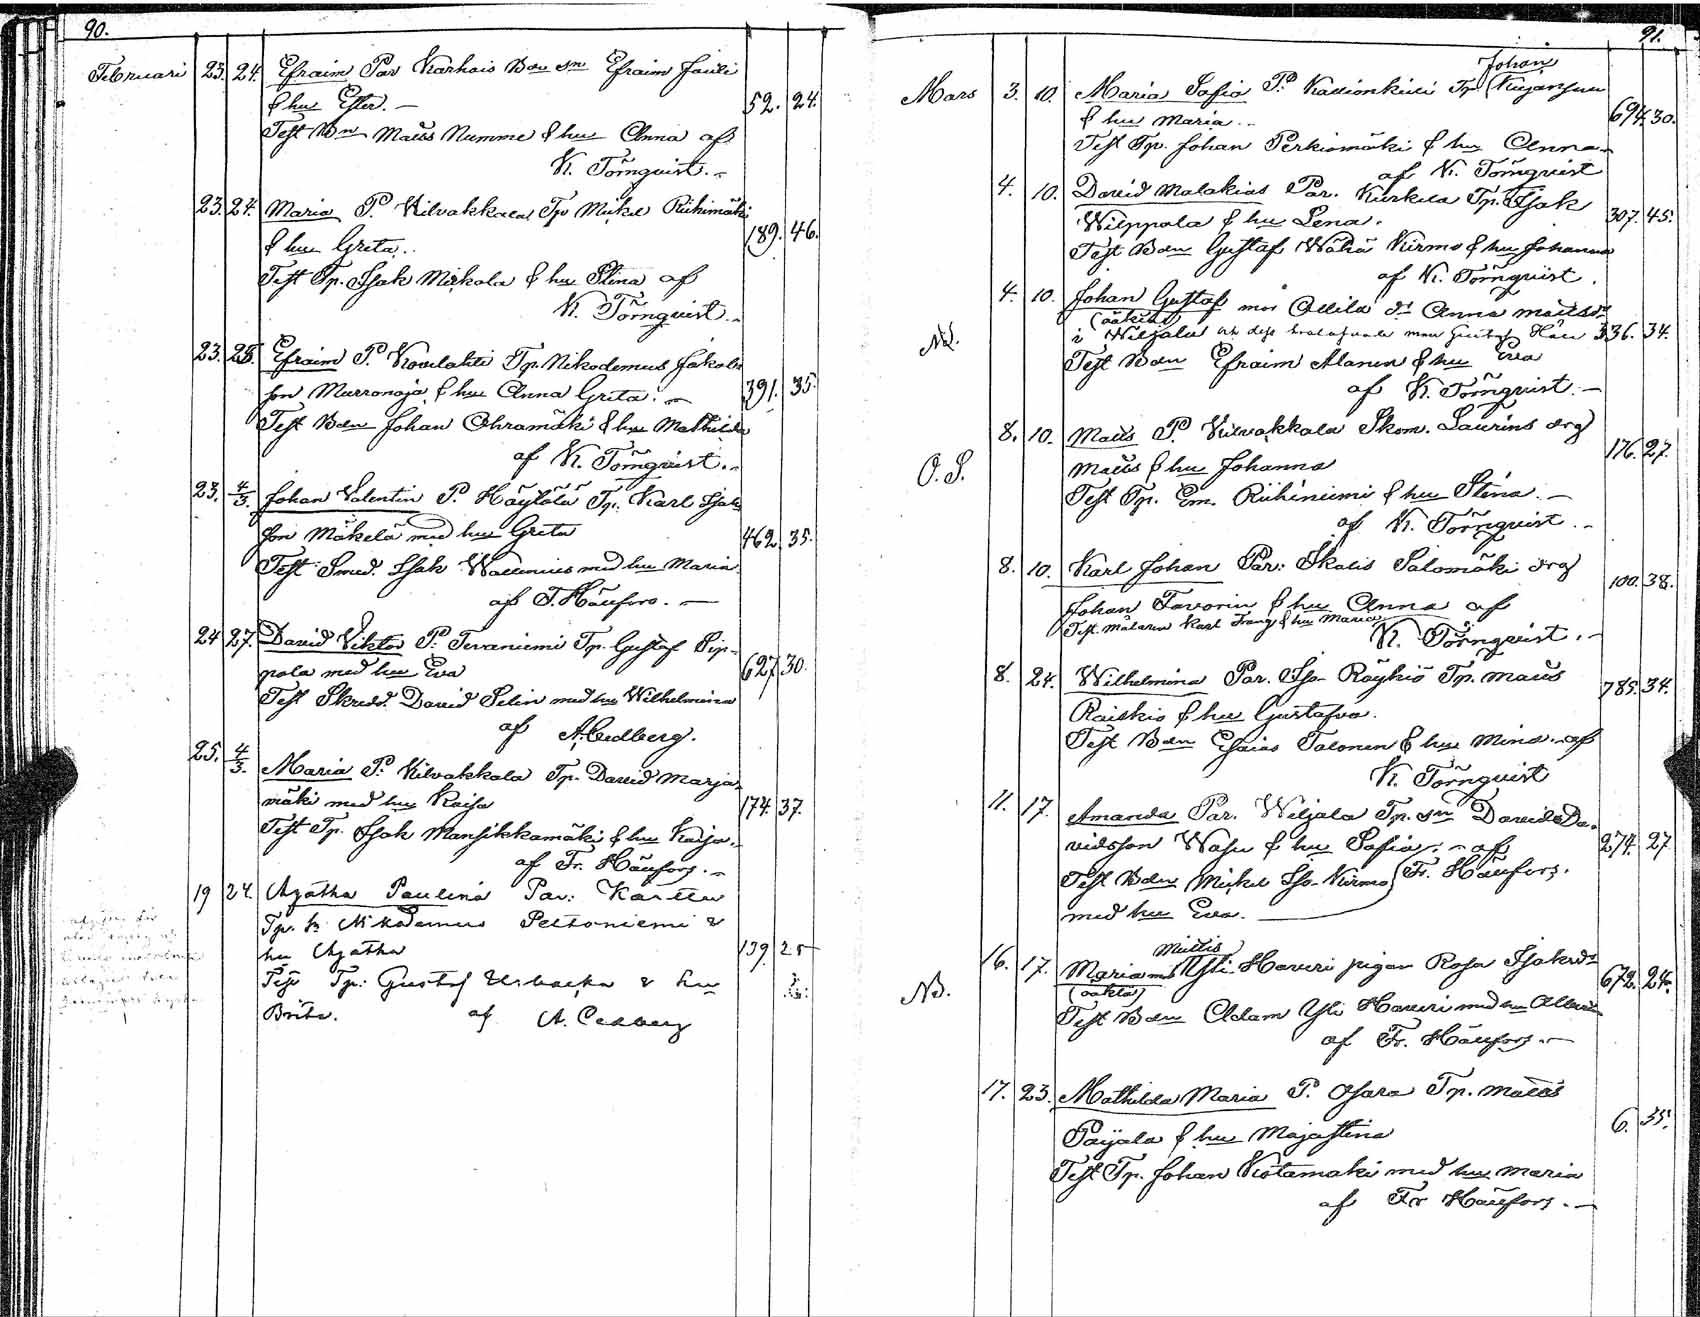 90.
Februari 23. 24. Efraim Par Karhois Bdn sn Efraim Jouli
& hu Ester. — 52. 24.
Test Bdn Matts Numme & hu Anna af
K. Törnqvist. —
23. 24. Maria P. Kilvakkala Tp Mickel Riihimäki
& hu Greta. 189. 46.
Test Tp. Isak Mickola & hu Stina af
K. Törnqvist. —
23. 25. Efraim P. Kovelahti Tp. Nikodemus Jakobs
son Murronoja & hu Anna Greta. — 391. 35.
Test Bdn Johan Ohramäki & hu Mathilda
af K. Törnqvist. —
23. 4/3. Johan Valentin P. Höytölä Tp. Karl Isak
son Mäkelä med hu Greta 462. 35.
Test Smed. Isak Wallenius med hu Maria
af F. Häufors. —
24 27. David Viktor P. Tevaniemi Tp. Gustaf Pip-
pola med hu Eva 627 30.
Test Skredd. David Selin med hu Wilhelmina
af A. Cedberg.
25. 4/3. Maria P. Kilvakkala Tp. David Marja
mäki med hu Kaisa 174. 37.
Test Tp. Isak Mansikkamäki & hu Kaisa.
af Fr. Häufors. —
19 24. Agatha Paulina Par: Karttu
Tp. sn Nikodemus Peltoniemi &
hu Agatha 139. 25
Test Tp: Gustaf Urbacka & hu
Brita. af A. Cedberg
91.
Johan
Mars 3. 10. Maria Sofia P. Kallionkieli Tp Kujansuu
& hu Maria. 694. 30.
Test Tp. Johan Perkiomäki & hu Anna
af K. Törnqvist
4. 10. David Malakias Par. Kurkela Tp. Isak
Wilppola & hu Lena. 307. 45.
Test Bdn Gustaf Wähä Kirmo & hu Johanna
af K. Törnqvist.
4. 10. Johan Gustaf mor Ollila dr Anna Mattsdr
(oäkta)
NB. i Wiljala och dess trolofvade man Gustaf 336. 34.
Test Bdn Efraim Alanen & hu Eva
af K. Törnqvist. —
8. 10. Matts P. Kilvakkala Skom. Laurins drg
O. S. Matts & hu Johanna 176. 27.
Test Tp. Em. Riihiniemi & hu Stina. —
af K. Törnqvist. —
8. 10. Karl Johan Par: Skatis Salomäki drg 100. 38.
Johan Favorin & hu Anna af
Test. målaren Karl Frang & hu Maria
K. Törnqvist. —
8. 24. Wilhelmina Par. Iso Röyhiö Tp. Matts 785. 34.
Raiskio & hu Gustafva.
Test Bdn Esaias Talonen & hu Mina. af
K. Törnqvist
11. 17. Amanda Par. Wiljala Tp. sn David Da-
vidsson Wasu & hu Sofia. — af 274. 27
Test Bdn Mickel Iso-Kirmo Fr. Häufors.
med hu Eva. —
Miettis
16. 17. Maria Yli Haveri pigan Rosa Isaksdr 672. 24.
NB. (oäkta)
Test Bdn Adam Yli Haveri med hu
af Fr. Häufors. —
17. 23. Mathilda Maria P. Osara Tp. Matts
Paijala & hu Majastina 6. 35.
Test Tp. Johan Kotamaki med hu Maria
af Fr Häufors. —